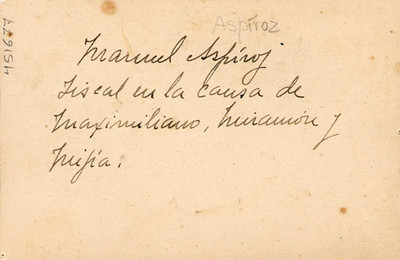 Aspíroz
Manuel Aspíroz
Fiscal en la causa de
Maximiliano, Miramón y
Mejía.